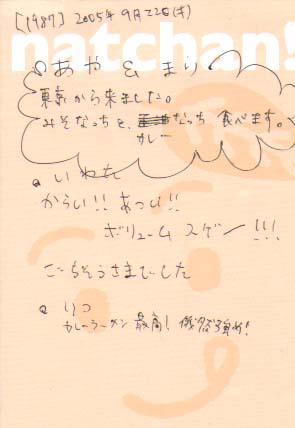 [1987] 2005年9月22日(木)
natchan!
♪あや & まり
東京から来ました。
みそなっちと、カレーなっち 食べます。
。いわた
からい!! あつい!!
ボリュームスゲー!!!
ごちそうさまでした
。りつ
カレーラーメン 最高!